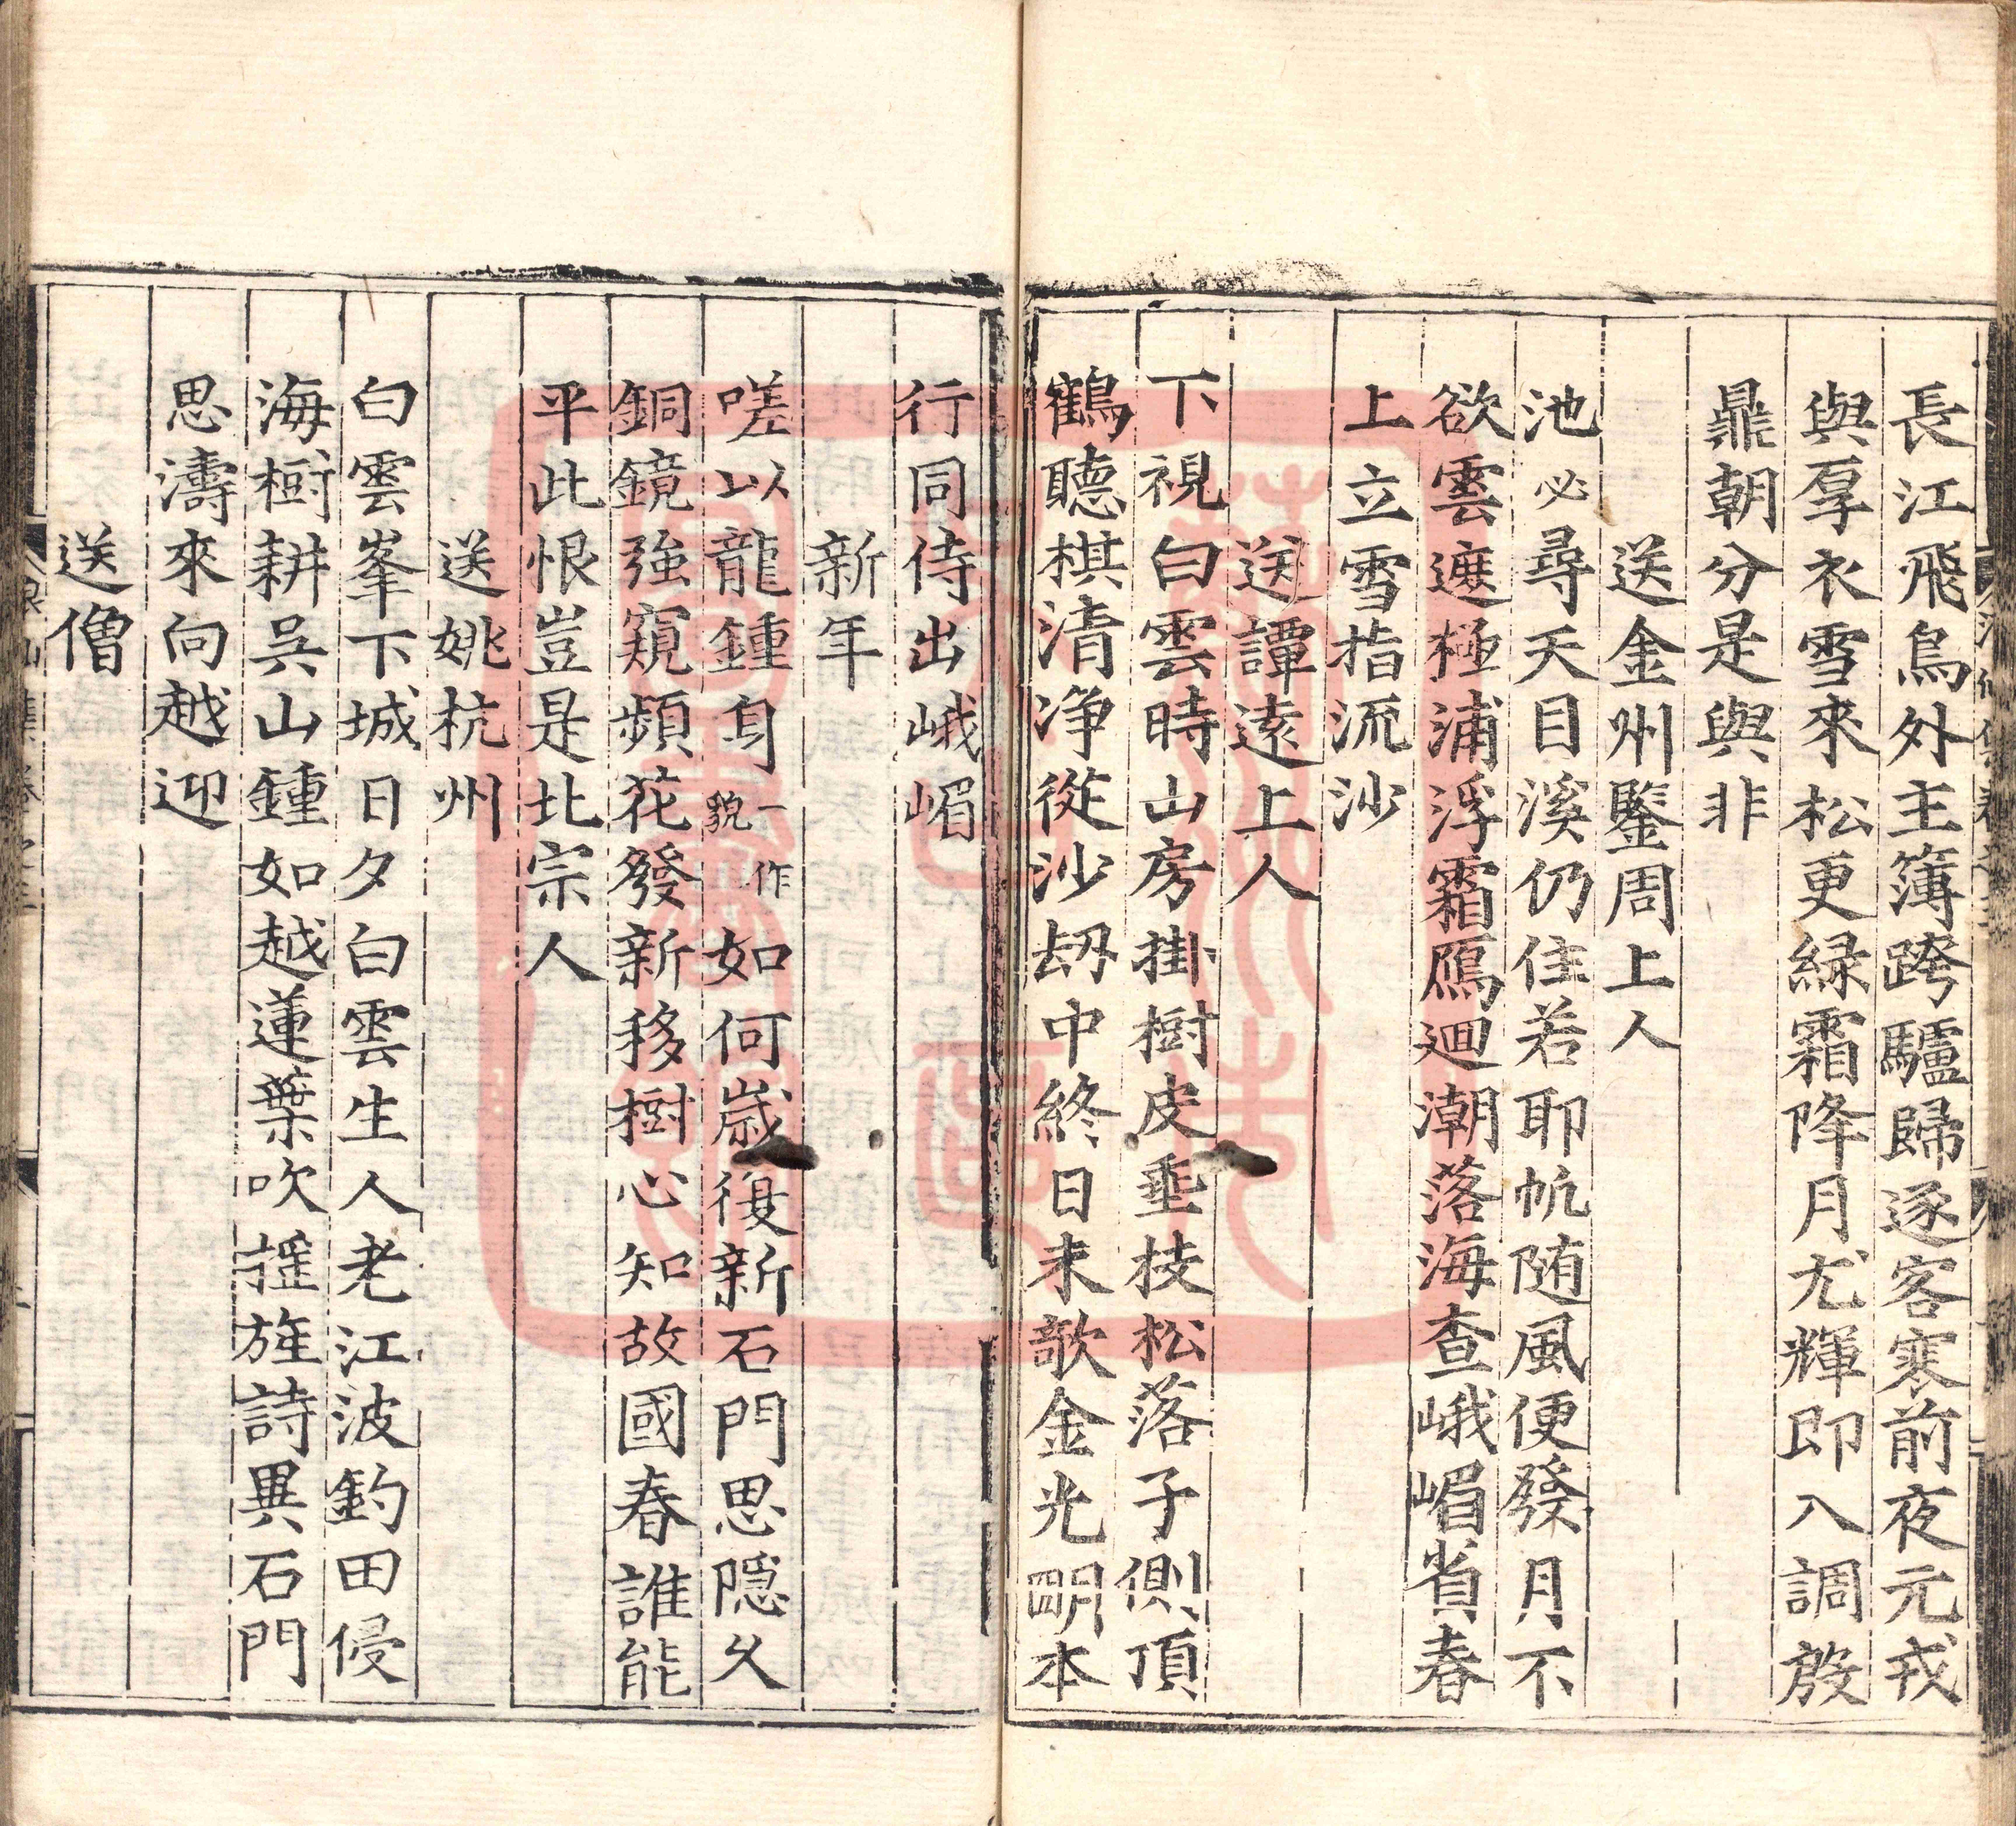 長江飛鳥外主簿跨驢歸逐客寒前夜元戎
與厚衣雪來松更緑霜降月尤輝即入調殷
鼎朝分是與非
送金州鑒周上人
池必尋天目溪仍住若耶帆随風便發月不
欲雲遮極浦浮霜鴈迴潮落海查峨嵋省春
上立雪指流沙
送譚遠上人
下視白雲時山房掛樹皮垂枝松落子側頂
鶴聽棋清浄從沙刼中終日未欹金光明本
行同侍出峨嵋
新年
嗟以龍鍾身一作貌如何歲復新石門思隠久
銅鏡強窺頻花發新移樹心知故國春誰能
平此恨豈是北宗人
送姚杭州
白雲峯下城日夕白雲生人老江波釣田侵
海樹耕吳山鍾如越蓮葉吹揺旌詩異石門
思濤來向越迎
送僧